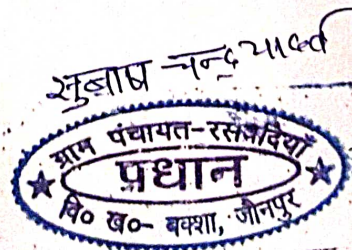 सुबाष चन्द्र यादव
ग्राम पंचायत-रसनदियाँ
प्रधान
वि० ख०- बक्शा, जौनपुर